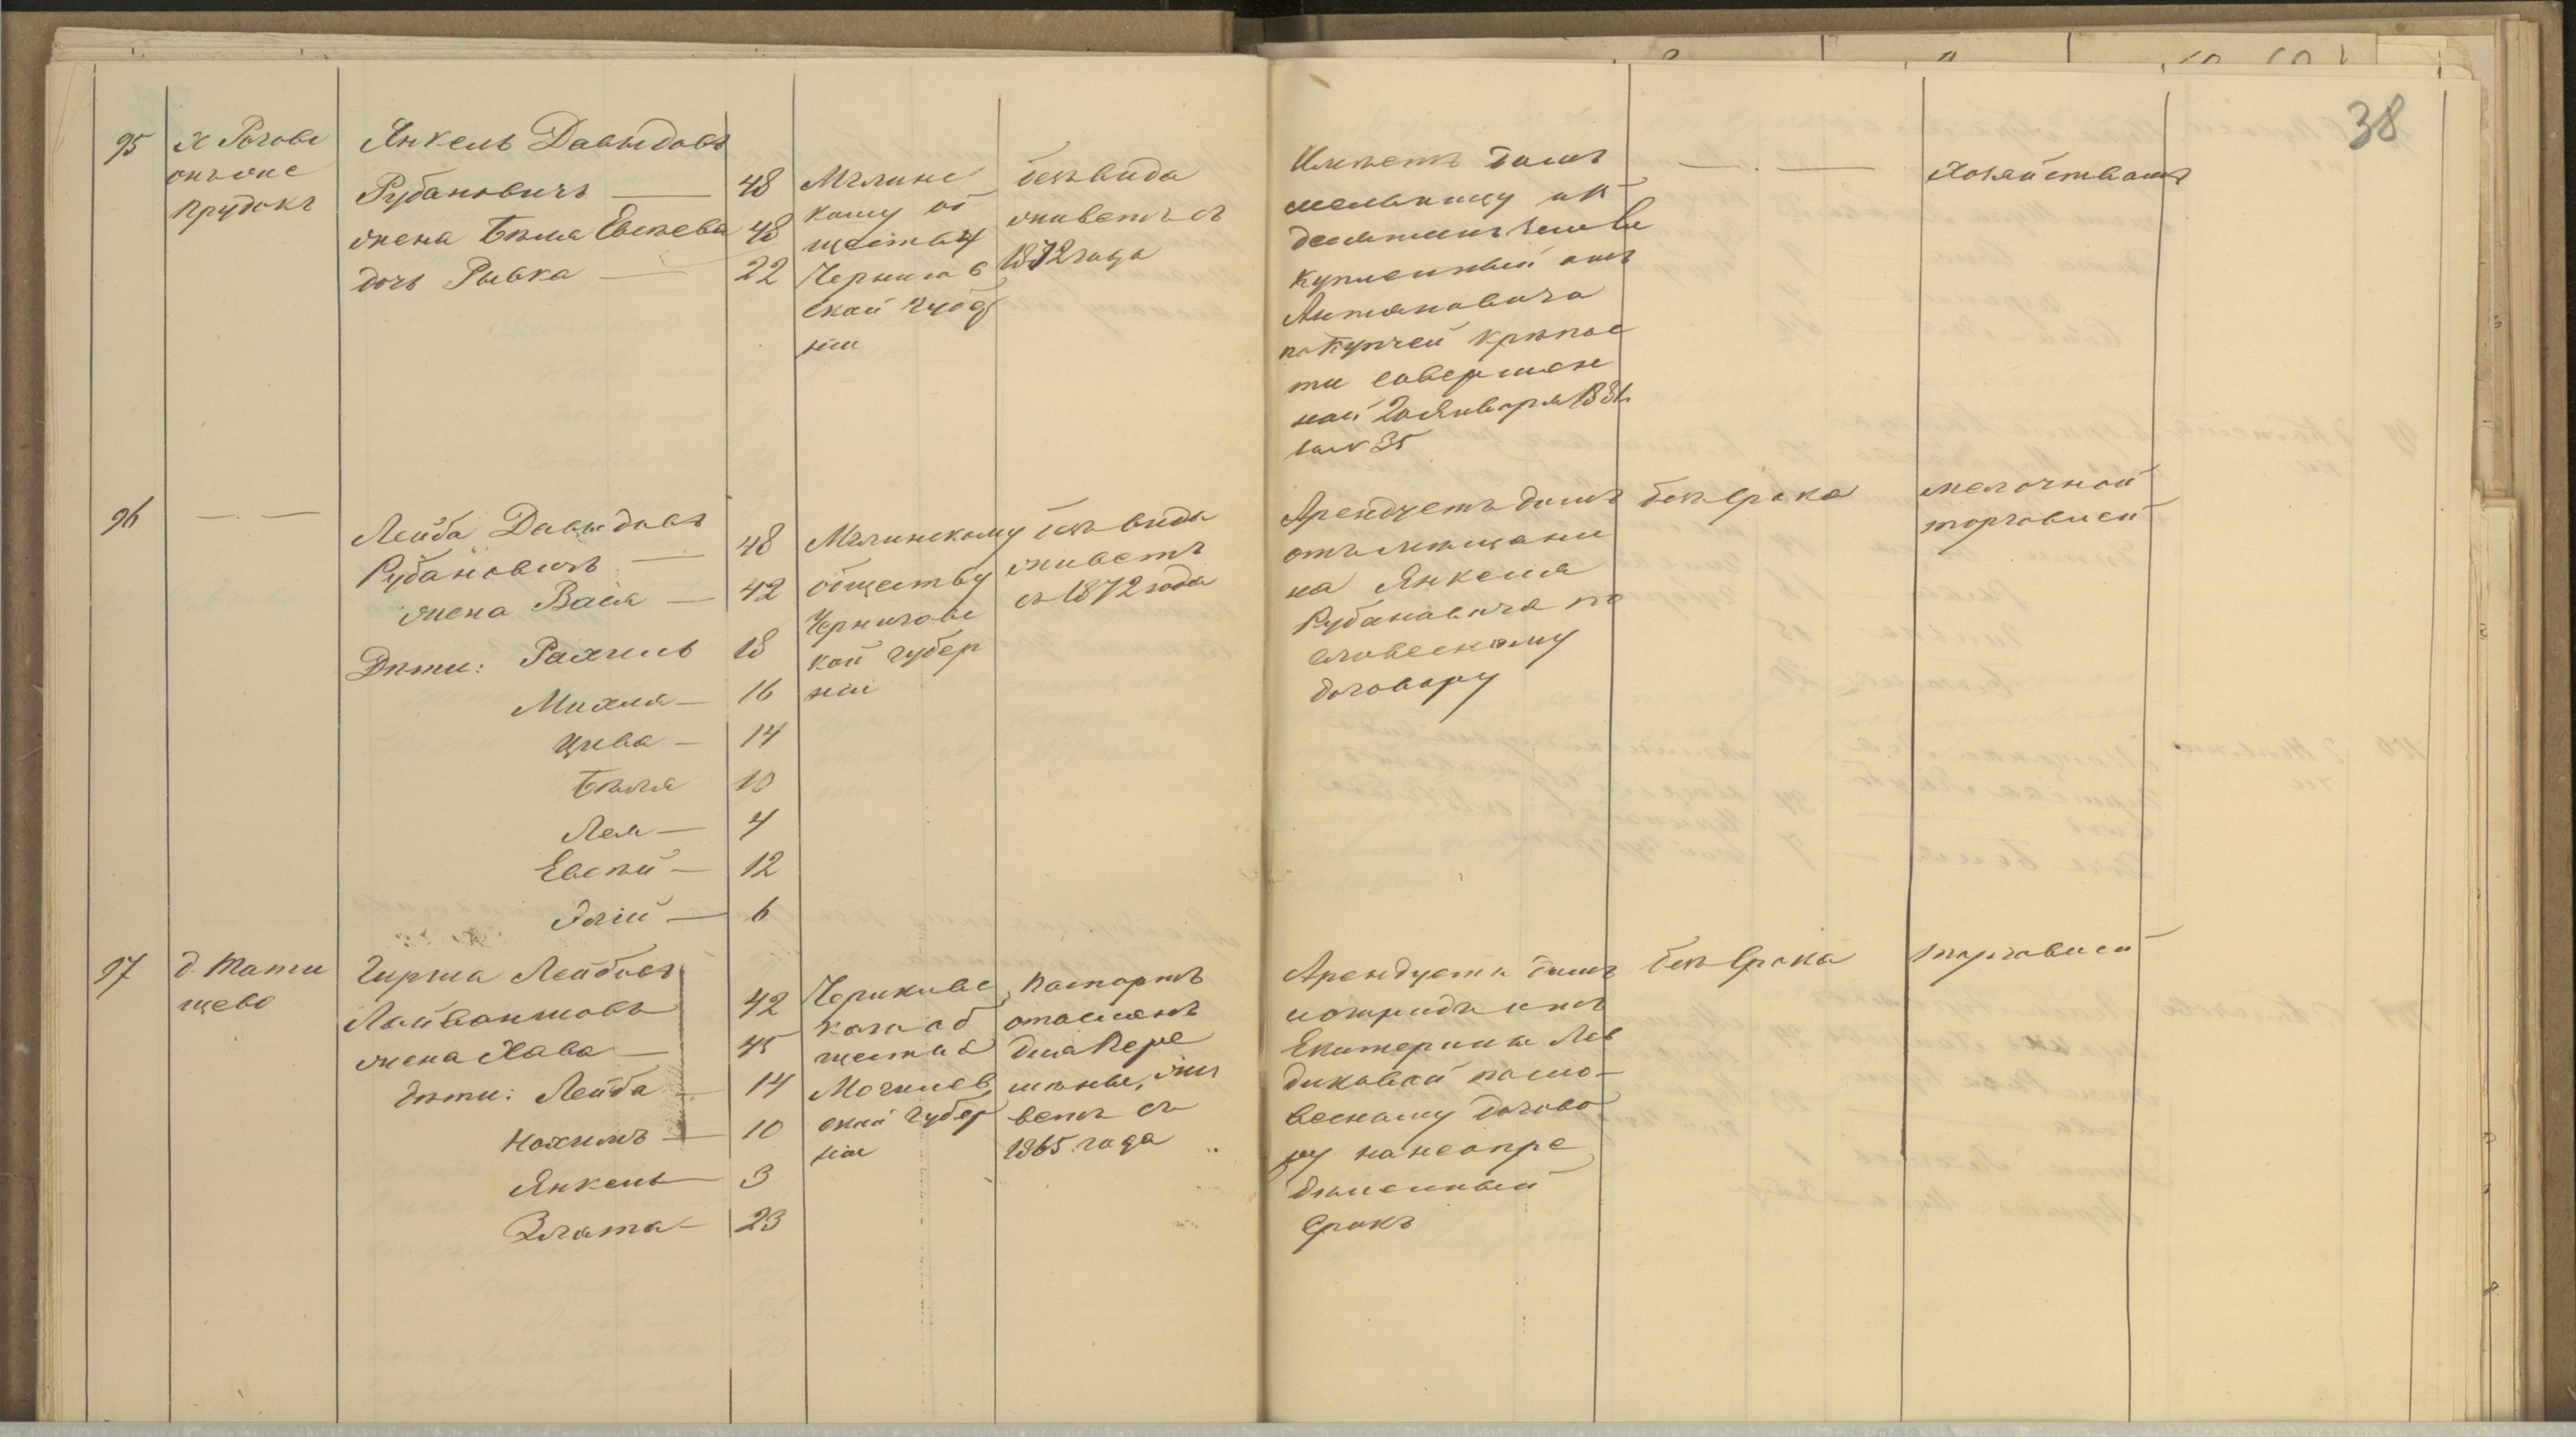 38
95
х Рогове
Прудокъ
Янкель Давыдовъ
Рубановичъ — 48
жена Бѣля Евсѣева 48
дочь Рывка — 22
Мглинс
кому об
ществу
Чернигов
ской губер
ніи
безъ вида
живетъ съ
1872 года
Имѣетъ домъ
мельницу и
десятинъ земли
купленный отъ
Антоновича
по купчей крѣпос
ти совершен
ной 20 Января 1881
за № 35
— . —
хозяйствомъ
96
— . —
Лейба Давыдовъ
Рубановичъ — 48
жена Вася — 42
Дѣти: Рахиль 18
Михля — 16
Цива — 14
Бѣля 10
Лея — 4
Евсѣй — 12
Элій — 6
Мглинскому
обществу
Черниговс
кой губер
ніи
безъ вида
живетъ
съ 1872 года
Арендуетъ домъ
отъ мѣщани
на Янкеля
Рубановича по
словесному
договору
безъ срока
мелочной
торговлей
97
д. Тати
щево
Гирша Лейбовъ
42
жена Хава — 45
дѣти: Лейба — 14
Нохимъ — 10
Янкель — 3
Злата — 23
Чериковс
каго об
щества
Могилев
ской губер
ніи
Паспортъ
отосланъ
для пере
мѣны, жи
ветъ съ
1865 года
Арендуетъ домъ
у
Екатерины Лев
диковой по сло-
весному догово
ру на неопре
дѣленный
срокъ
безъ срока
торговлей